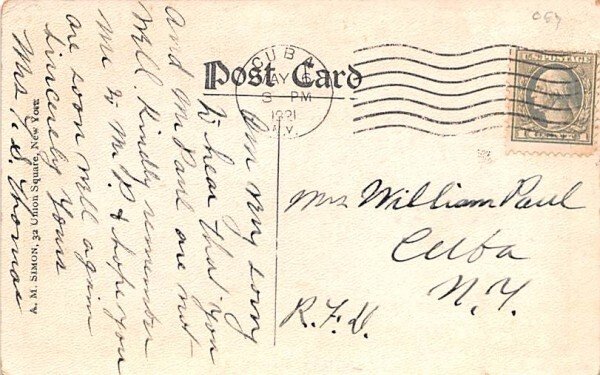 069
CUBA
MAY 6
3 PM
1921
N.Y.
U.S. POSTAGE
Post Card
Am very sorry
to hear that you
and Mr Paul are not
well. Kindly remember
me to Mr. P. & hope you
are soon well again
Sincerely yours
Mrs. S. Thomas
A. M. SIMON, 32 Union Square, New York
Mrs William Paul
Cuba
N.Y.
R.F.D.